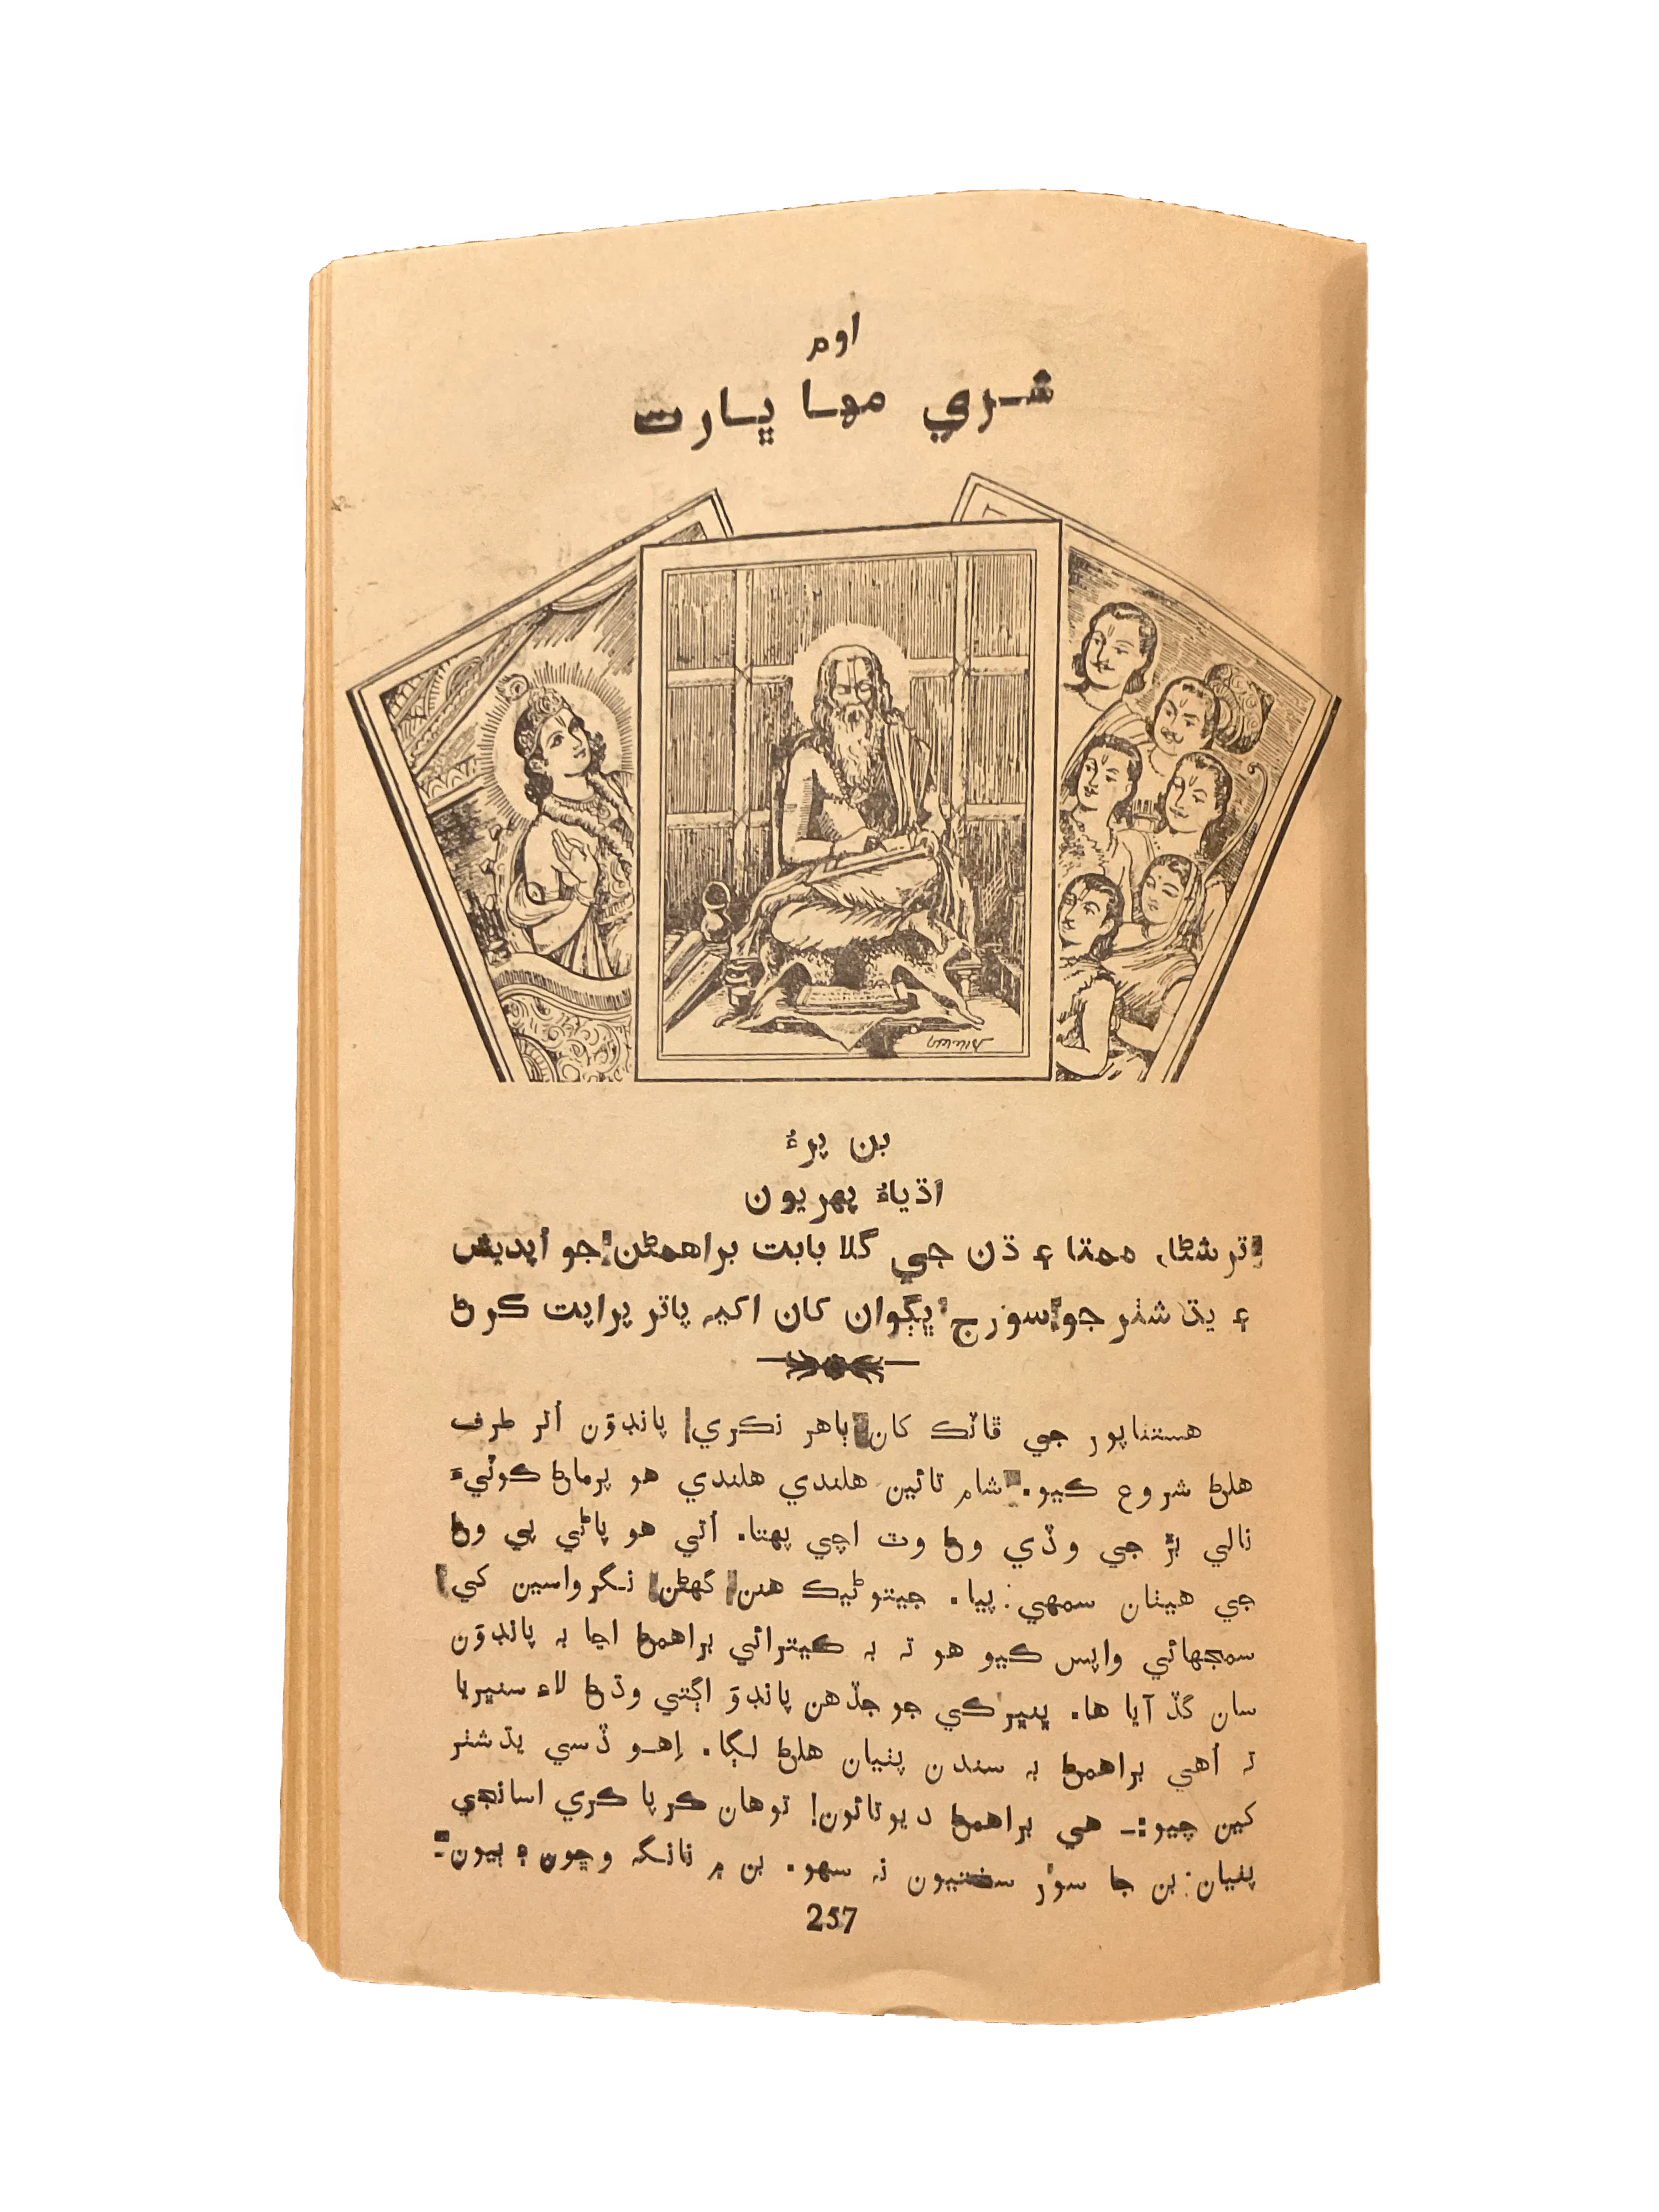 اوم
شري مها ڀارت
بن پرءُ
اڌياءُ پهريون
ترشڻا، ممتا ۽ ڌن جي گلا بابت براهمڻن جو اُپديش
۽ يڌشٽر جو سورج ڀڳوان کان اکيه پاتر پراپت ڪرڻ
هستناپور جي ڦاٽڪ کان ٻاهر نڪري پانڊوَن اُتر طرف
هلڻ شروع ڪيو. شام تائين هلندي هلندي هو پرماڻ ڪوٽيءَ
نالي بڙ جي وڏي وڻ وٽ اچي پهتا. اُتي هو پاڻي پي وڻ
جي هيٺان سمهي پيا. جيتوڻيڪ هنن گهڻن نگرواسين کي
سمجهائي واپس ڪيو هو ته به ڪيترائي براهمڻ اڃا به پانڊوَن
سان گڏ آيا ها. ڀنڀرڪي جو جڏهن پانڊوَ اڳتي وڌڻ لاءِ سنڀريا
ته اُهي براهمڻ به سندن پٺيان هلڻ لڳا. اِهو ڏسي يڌشٽر
کين چيو:ـ هي براهمڻ ديوتائون! توهان ڪرپا ڪري اسانجي
پٺيان بن جا سوُر سختيون نه سهو. بن ۾ نانگ وڇون ۽ ٻيون
257